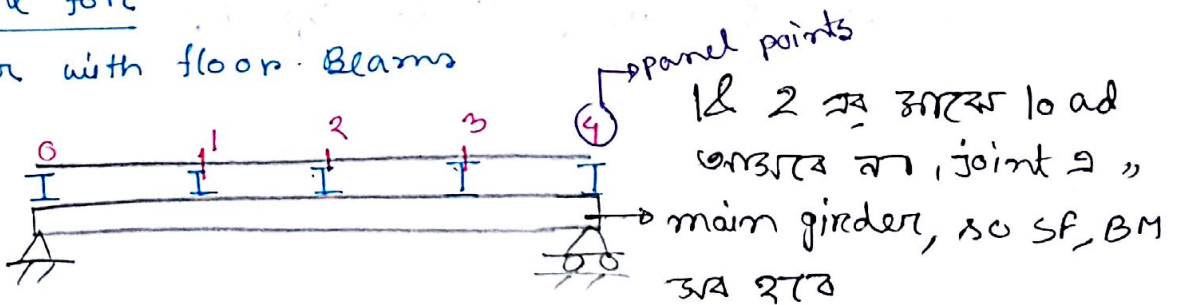 with floor. Beams
panel points
0 1 2 3 4
1 & 2 এর মাঝে load
আসবে না, joint এ ,,
main girder, so SF, BM
সব হবে